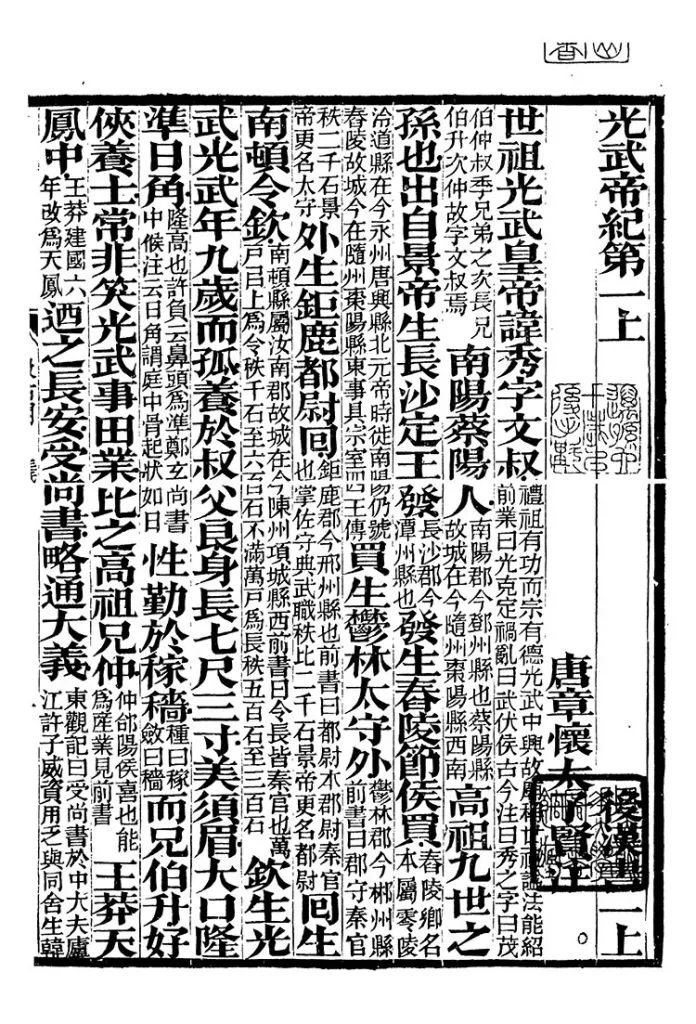 光武帝紀第一上 後漢書一上
唐章懷太子賢注
世祖光武皇帝諱秀字文叔 禮祖有功而宗有德光武中興故廟稱世祖諡法能紹前業曰光克定禍亂曰武伏侯古今注曰秀之字曰茂
伯仲叔季兄弟之次長兄伯升次仲故字文叔焉 南陽蔡陽人 南陽郡今鄧州縣也蔡陽縣故城在今隨州棗陽縣西南 高祖九世之
孫也出自景帝生長沙定王發 長沙郡今潭州縣也 發生舂陵節侯買 舂陵鄉名本屬零陵
泠道縣在今永州唐興縣北元帝時徙南陽仍號舂陵故城今在隨州棗陽縣東事具宗室四王傳 買生鬱林太守外 鬱林郡今郴州縣前書曰郡守秦官
秩二千石景帝更名太守 外生鉅鹿都尉回 鉅鹿郡今邢州縣也前書曰都尉本郡尉秦官也掌佐守典武職秩比二千石景帝更名都尉 回生
南頓令欽 南頓縣屬汝南郡故城在今陳州項城縣西前書曰令長皆秦官也萬戶已上爲令秩千石至六百石不滿萬戶爲長秩五百石至三百石 欽生光
武光武年九歲而孤養於叔父良身長七尺三寸美須眉大口隆
準日角 隆高也許負云鼻頭爲準鄭玄尚書中候注云日角謂庭中骨起狀如日 性勤於稼穡 種曰稼斂曰穡 而兄伯升好
俠養士常非笑光武事田業比之高祖兄仲 仲郃陽侯喜也能爲産業見前書 王莽天
鳳中 王莽建國六年改爲天鳳 迺之長安受尚書略通大義 東觀記曰受尚書於中大夫廬江許子威資用乏與同舍生韓